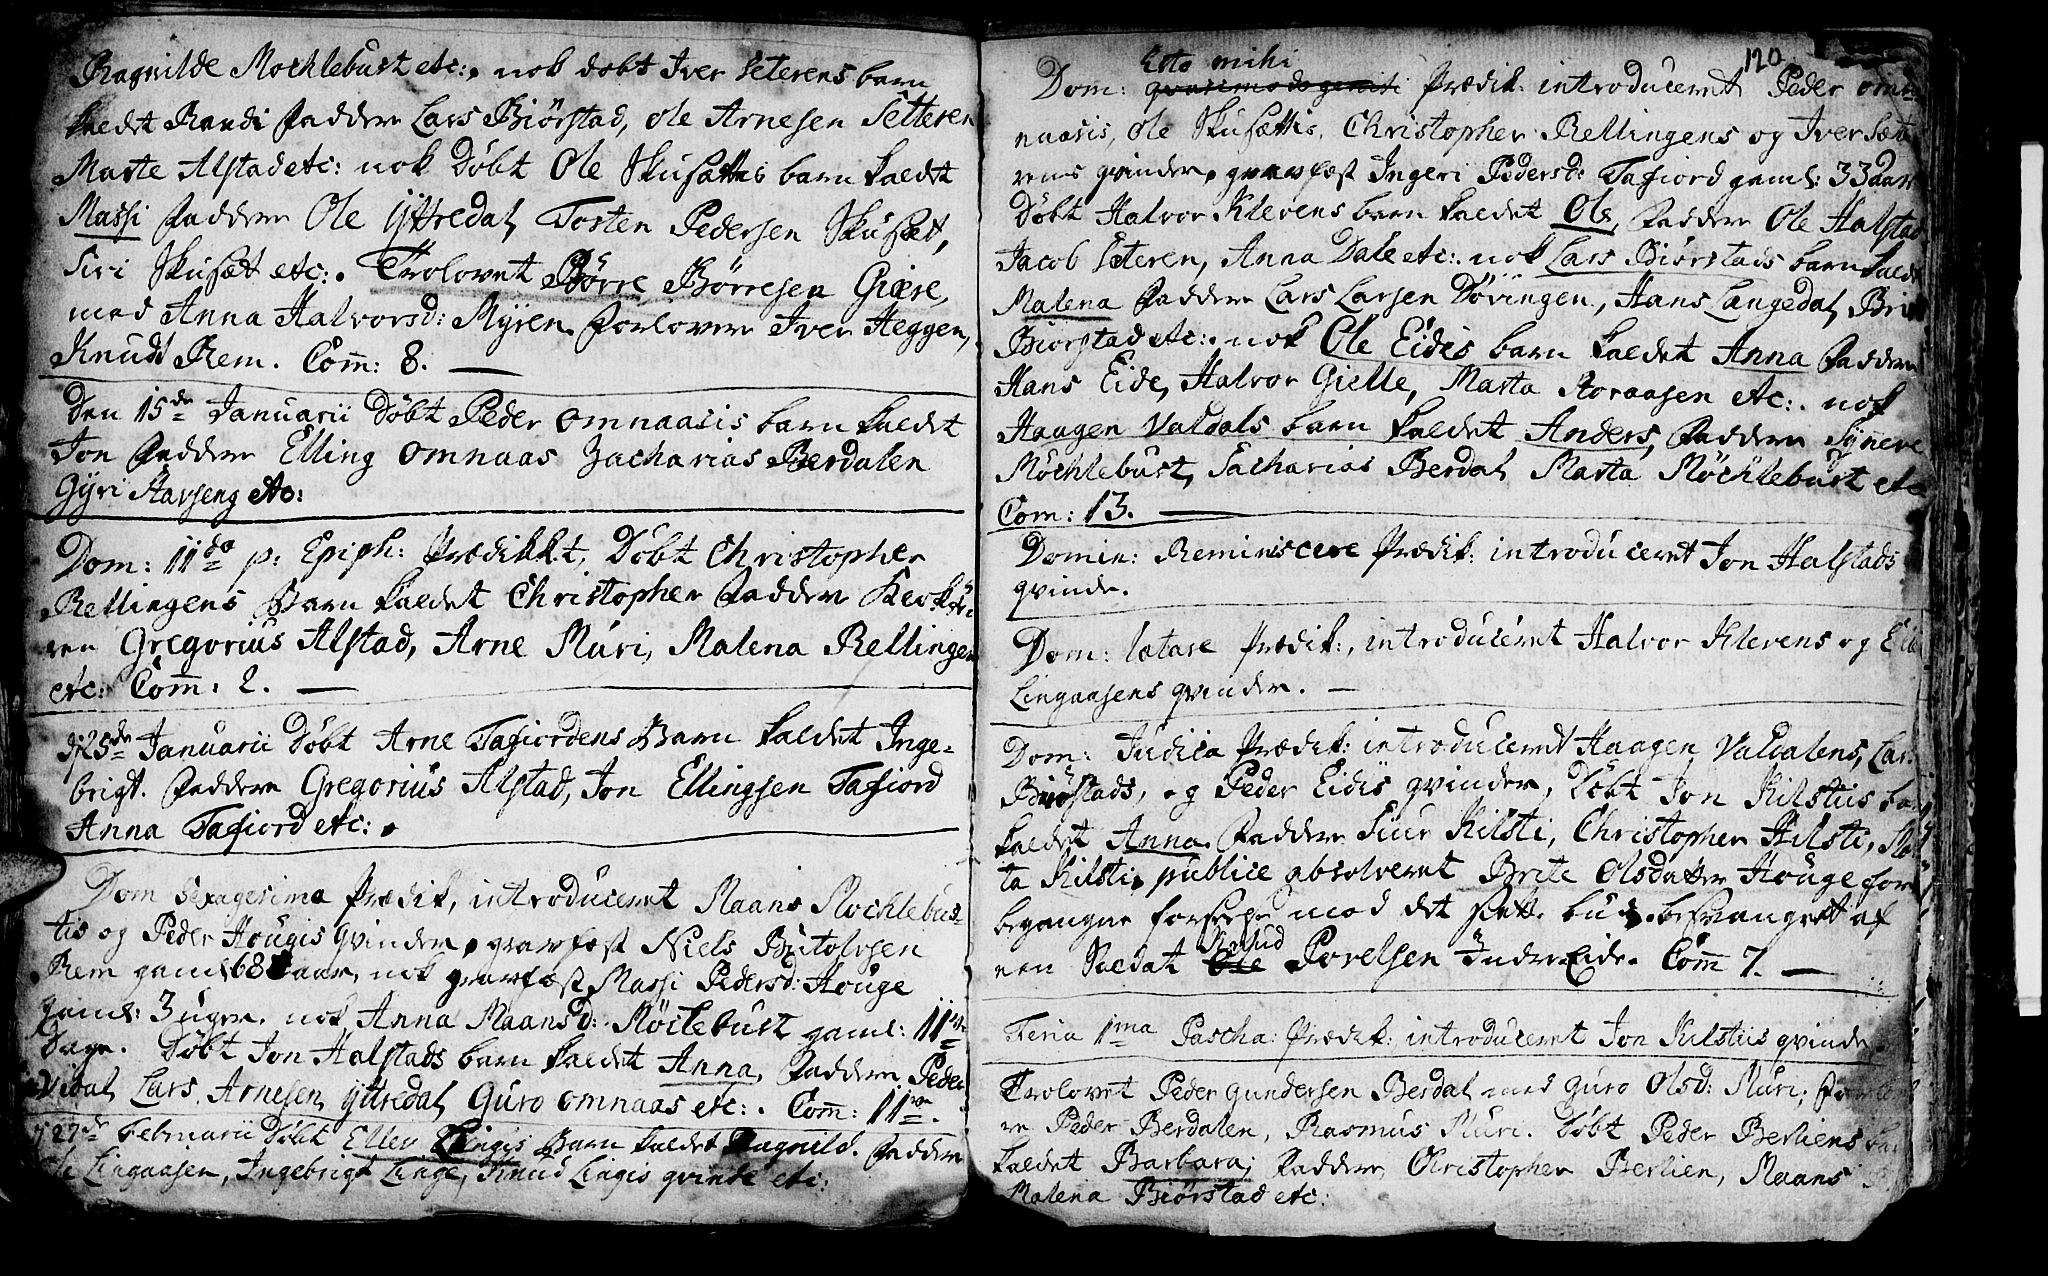 Ragnilde Mochlebust etc:, nok dobt Iver Seterens barn
kaldet Randi Faddere Lars Biørstad, Ole Arnesen Setteren
Marte Alstad etc: nok Døbt Ole Skusættis barn kaldet
Massi Faddere Ole Yttredal, Torsten Pedersen Skusæt,
Siri Skusæt etc:. Trolovet Børre Børresen Giære,
med Anna Halvorsd: Myren. Forlovere Iver Heggen,
Knudt Rem. Com̅: 8.
Den 15de Januarii Døbt Peder Omnaasis barn kaldet
Jon Faddere Elling Omnaas Zacharias Berdalen
Gÿri Harseng etc:
Dom: IIda p: Epiph: Prædikkt, Døbt Christopher
Rellingens Barn kaldet Christopher Faddere
Gregorius Alstad, Arne Muri, Malena Rellingen
etc: Com̅: 2.
25de Januarii Døbt Arne Tafiordens Barn kaldet Inge-
brigt. Faddere Gregorius Alstad, Jon Ellingsen Tafiord
Anna Tafiord etc:
Dom Sexagesima Prædik, introduceret Maans Mochlebus-
tis og Peder Hougis qvinder, gravfæst Niels
Rem gaml 68 aar, nok gravfæst Massi Pedersd: Houge
gaml: 3 uger. nok Anna Maansd: Möclebust gaml: 11
Dage. Døbt Jon Halstads barn kaldet Anna, Faddere Peder
Lars Arnesen Yttredal Guro Omnaas etc:. Com̅: 11
27de Februarii Døbt Lingis Barn kaldet Ragnild. Faddere
Lingaasen, Ingebrigt Linge, Knud Lingis qvinde etc:
120.
Esto mihi
Dom: quasimodogeniti Prædik: introduceret Peder Om-
naasis, Ole Skusættis, Christopher Rellingens og Iver Sæte
rens qvinder, gravfæst Ingeri Pedersd: Tafiord gaml: 33 aar
Døbt Halvor Klevens barn kaldet Ole, Faddere Ole Halstad
Jacob Seteren, Anna Dale etc: nok Lars Biørstads barn kaldt
Malena Faddere Lars Larsen Døvingen, Hans Langedal,
Biørstad etc:. nok Ole Eidis barn kaldet Anna Faddere
Hans Eide, Halvor Gielle, Marta Roraasen etc:. nok
Haagen Valdals barn kaldet Anders, Faddere Synneve
Möchlebust, Sacharias Berdal, Marta Möchlebust etc
Com: 13.
Domin: Reminiscere Prædik: introduceret Jon Halstads
qvinde.
Dom: lætare Prædik:, introduceret Halvor Klevens og
Lingaasens qvinder.
Dom: Judica Prædik: introduceret Haagen Valdalens, Lars
Biørstads, og Peder Eidis qvinder, Døbt Jon Kilstiis
kaldet Anna. Faddere Siur Kilsti, Christopher Kilsti,
ta Kilsti. publice absolveret Brite Olsdatter Houge for
begangne forseelse mod det siette bud, besvangret af
en Soldat Ole Knud Povelsen Indre Eide. Com̅ 7.
Feria 1ma Pascha: Prædik: introduceret Jon Kilstiis qvinde.
Trolovet Peder Gundersen Berdal med Guro Olsd: Muri;
re Peder Berdalen, Rasmus Muri. Døbt Peder Berliens
kaldet Barbara; Faddere, Christopher Berlien, Maans
Malena Biørstad etc: